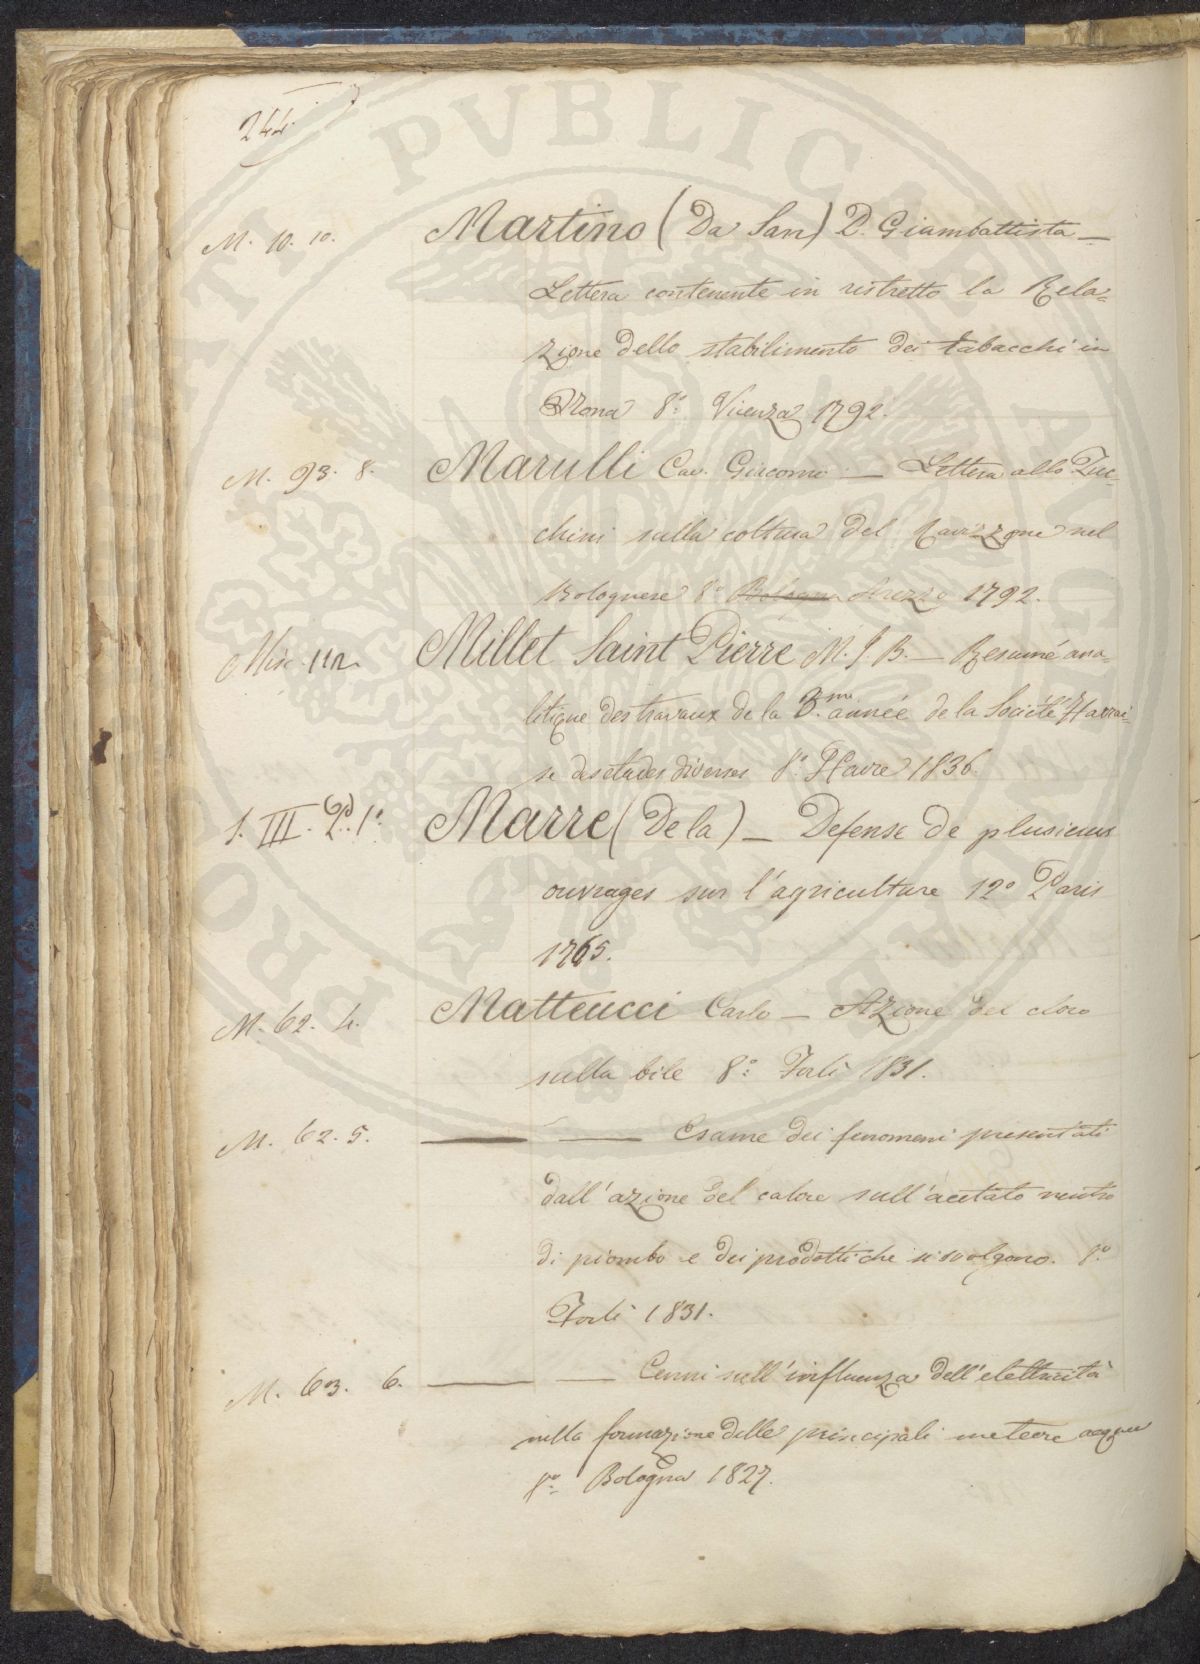 244.
M. 10. 10. Martino (Da San) D. Giambattista —
Lettera contenente in ristretto la Rela=
zione dello stabilimento dei tabacchi in
8.º Vicenza 1792.
M. 93. 8. Marulli Cav. Giacomo — Lettera allo Zuc-
chini sulla coltura del Ravizzone nel
Bolognese 8.º Bologna 1792.
Misc. 112 Millet Saint Pierre M. J. B. — Resumé ana-
litique des travaux de la 3.me année de la Société Havrai-
se des etudes diverses 8.º Havre 1836.
S. III. P. 1.º Marre (De la) — Defense de plusieurs
ouvrages sur l'agriculture 12º Paris
1765.
M. 62. 4. Matteucci Carlo — Azione del cloro
sulla bile 8.º Forlì 1831.
M. 62. 5. — — Esame dei fenomeni presentati
dall'azione del calore sull'acetato neutro
di piombo e dei prodotti che si svolgono. 8.º
Forlì 1831.
M. 63. 6. — — Cenni sull'influenza dell'elettricità
nella formazione delle principali meteore acquee
8.º Bologna 1827.
PVBLICAE